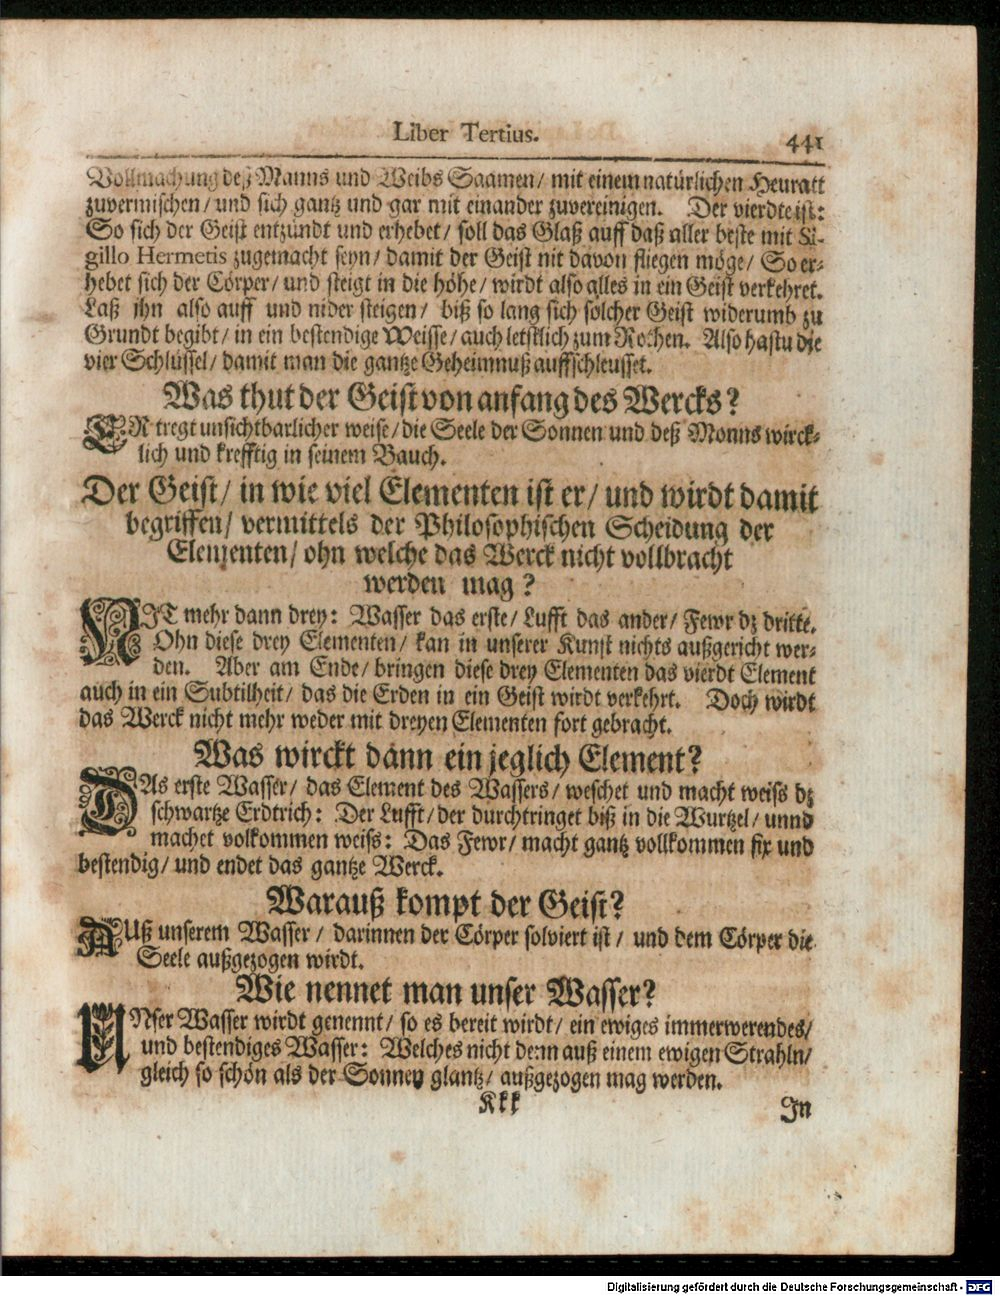 Liber Tertius. 441
Vollmachung deß Manns und Weibs Saamen/ mit einem natürlichen Heuratt
zuvermischen/ und sich gantz und gar mit einander zuvereinigen. Der vierdte ist:
So sich der Geist entzündt und erhebet/ soll das Glaß auff daß aller beste mit Si-
gillo Hermetis zugemacht seyn/ damit der Geist nit davon fliegen möge/ So er-
hebet sich der Cörper/ und steigt in die höhe/ wirdt also alles in ein Geist verkehret.
Laß ihn also auff und nider steigen/ biß so lang sich solcher Geist widerumb zu
Grundt begibt/ in ein bestendige Weisse/ auch letstlich zum Rothen. Also hastu die
vier Schlüssel/ damit man die gantze Geheimnuß auffschleusset.
Was thut der Geist von anfang des Wercks?
ER tregt unsichtbarlicher weise/ die Seele der Sonnen und deß Monns wirck-
lich und krefftig in seinem Bauch.
Der Geist/ in wie viel Elementen ist er/ und wirdt damit
begriffen/ vermittels der Philosophischen Scheidung der
Elementen/ ohn welche das Werck nicht vollbracht
werden mag?
NIT mehr dann drey: Wasser das erste/ Lufft das ander/ Fewr dz dritte.
Ohn diese drey Elementen/ kan in unserer Kunst nichts außgericht wer-
den. Aber am Ende/ bringen diese drey Elementen das vierdt Element
auch in ein Subtilheit/ das die Erden in ein Geist wirdt verkehrt. Doch wirdt
das Werck nicht mehr weder mit dreyen Elementen fort gebracht.
Was wirckt dann ein jeglich Element?
DAs erste Wasser/ das Element des Wassers/ weschet und macht weiss dz
schwartze Erdtrich: Der Lufft/ der durchtringet biß in die Wurtzel/ unnd
machet volkommen weiss: Das Fewr/ macht gantz vollkommen fix und
bestendig/ und endet das gantze Werck.
Warauß kompt der Geist?
AUß unserem Wasser/ darinnen der Cörper solviert ist/ und dem Cörper die
Seele außgezogen wirdt.
Wie nennet man unser Wasser?
UNser Wasser wirdt genennt/ so es bereit wirdt/ ein ewiges immerwerendes/
und bestendiges Wasser: Welches nicht denn auß einem ewigen Strahln/
gleich so schön als der Sonnen glantz/ außgezogen mag werden.
Kkk In
Digitalisierung gefördert durch die Deutsche Forschungsgemeinschaft - DFG